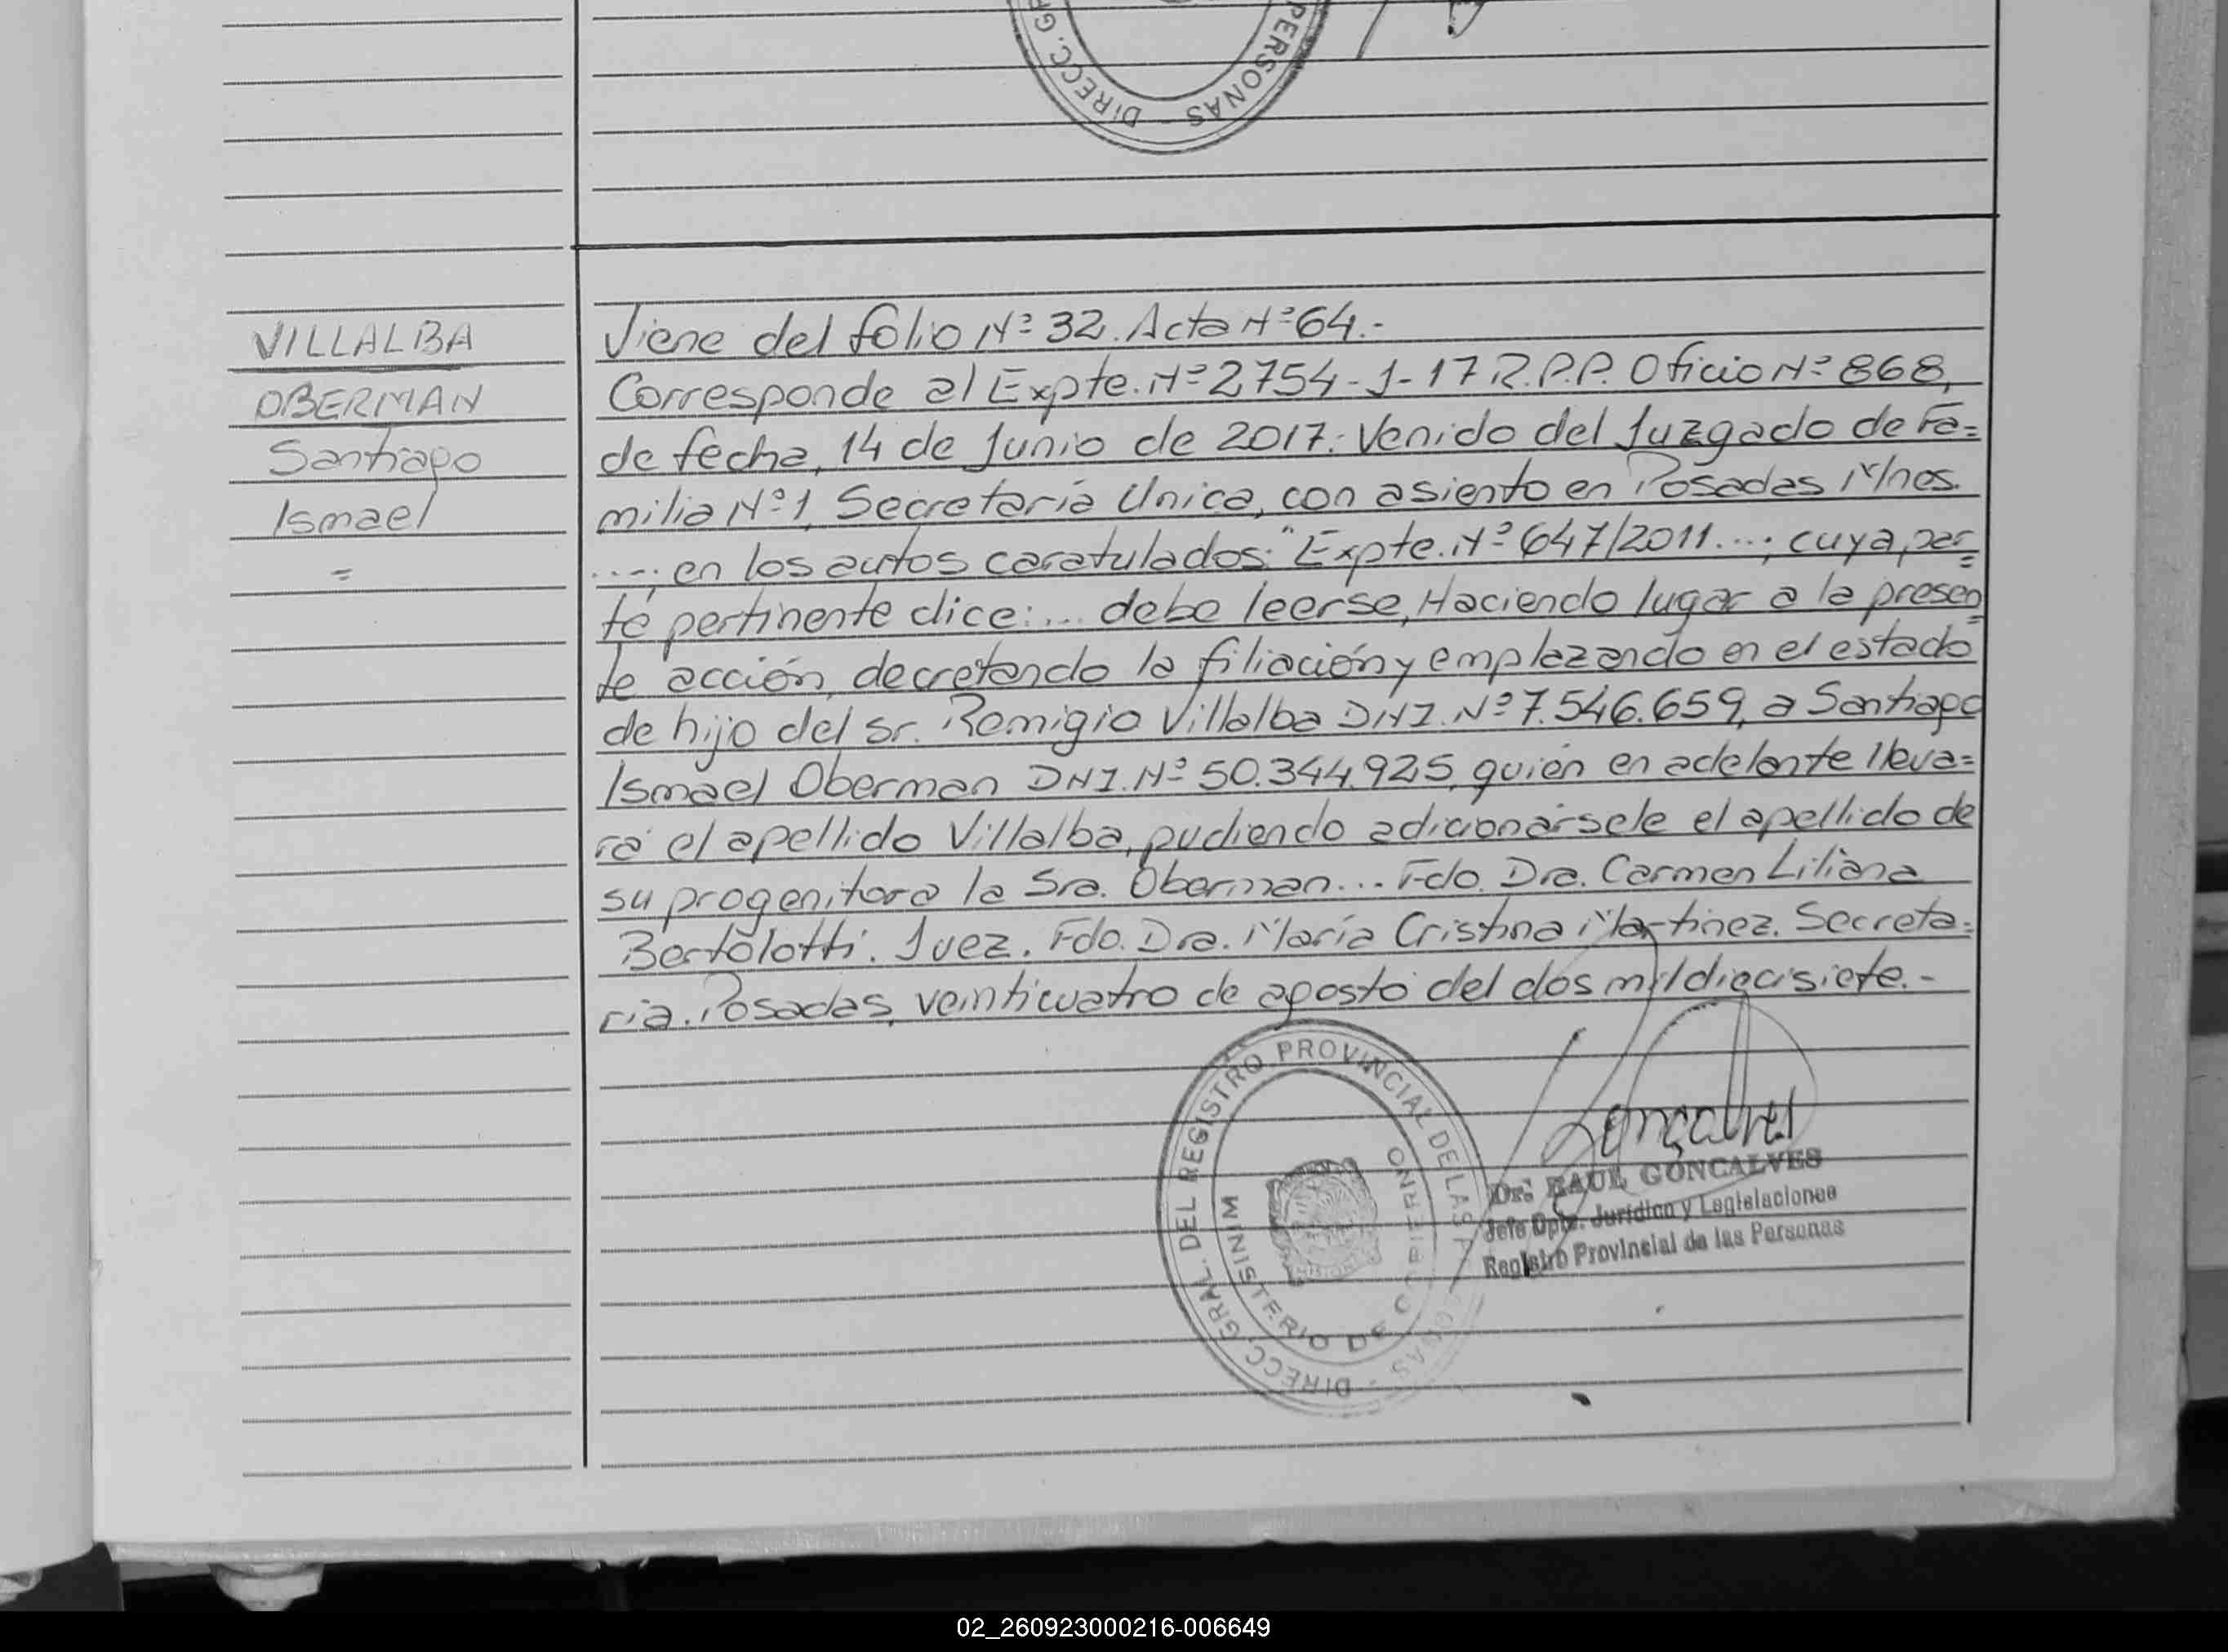 DIRECC. GR
PERSONAS -
VILLALBA
OBERMAN
Santiago
Ismael
=
Viene del folio Nº 32. Acta Nº 64.-
Corresponde al Expte. Nº 2754-J-17 R.P.P. Oficio Nº 868,
de fecha, 14 de Junio de 2017: Venido del Juzgado de Fa=
milia Nº 1, Secretaría Unica, con asiento en Posadas Mnes.
....; en los autos caratulados: "Expte. Nº 647/2011....; cuya par=
te pertinente dice:... debe leerse, Haciendo lugar a la presen=
te acción, decretando la filiación y emplazando en el estado
de hijo del sr. Remigio Villalba DNI. Nº 7.546.659, a Santiago
Ismael Oberman DNI. Nº 50.344.925, quién en adelante lleva=
rá el apellido Villalba, pudiendo adicionársele el apellido de
su progenitora la Sra. Oberman... Fdo. Dra. Carmen Liliana
Bertolotti. Juez. Fdo. Dra. María Cristina Martinez. Secreta=
ria. Posadas, veinticuatro de agosto del dos mil diecisiete.-
DIRECC. GRAL. DEL REGISTRO PROVINCIAL DE LAS PERSONAS -
MINISTERIO DE GOBIERNO
MISIONES
Gonçalves
Dr. RAUL GONCALVES
Jefe Dpto. Jurídico y Legislaciones
Registro Provincial de las Personas
02_260923000216-006649